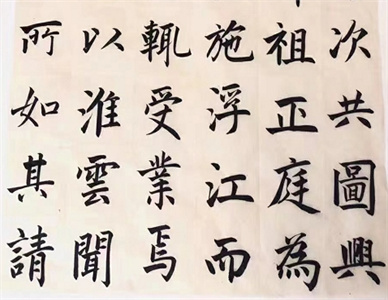 次共圖興
祖正庭為
施浮江而
輒受業焉
以淮雲聞
所如其請